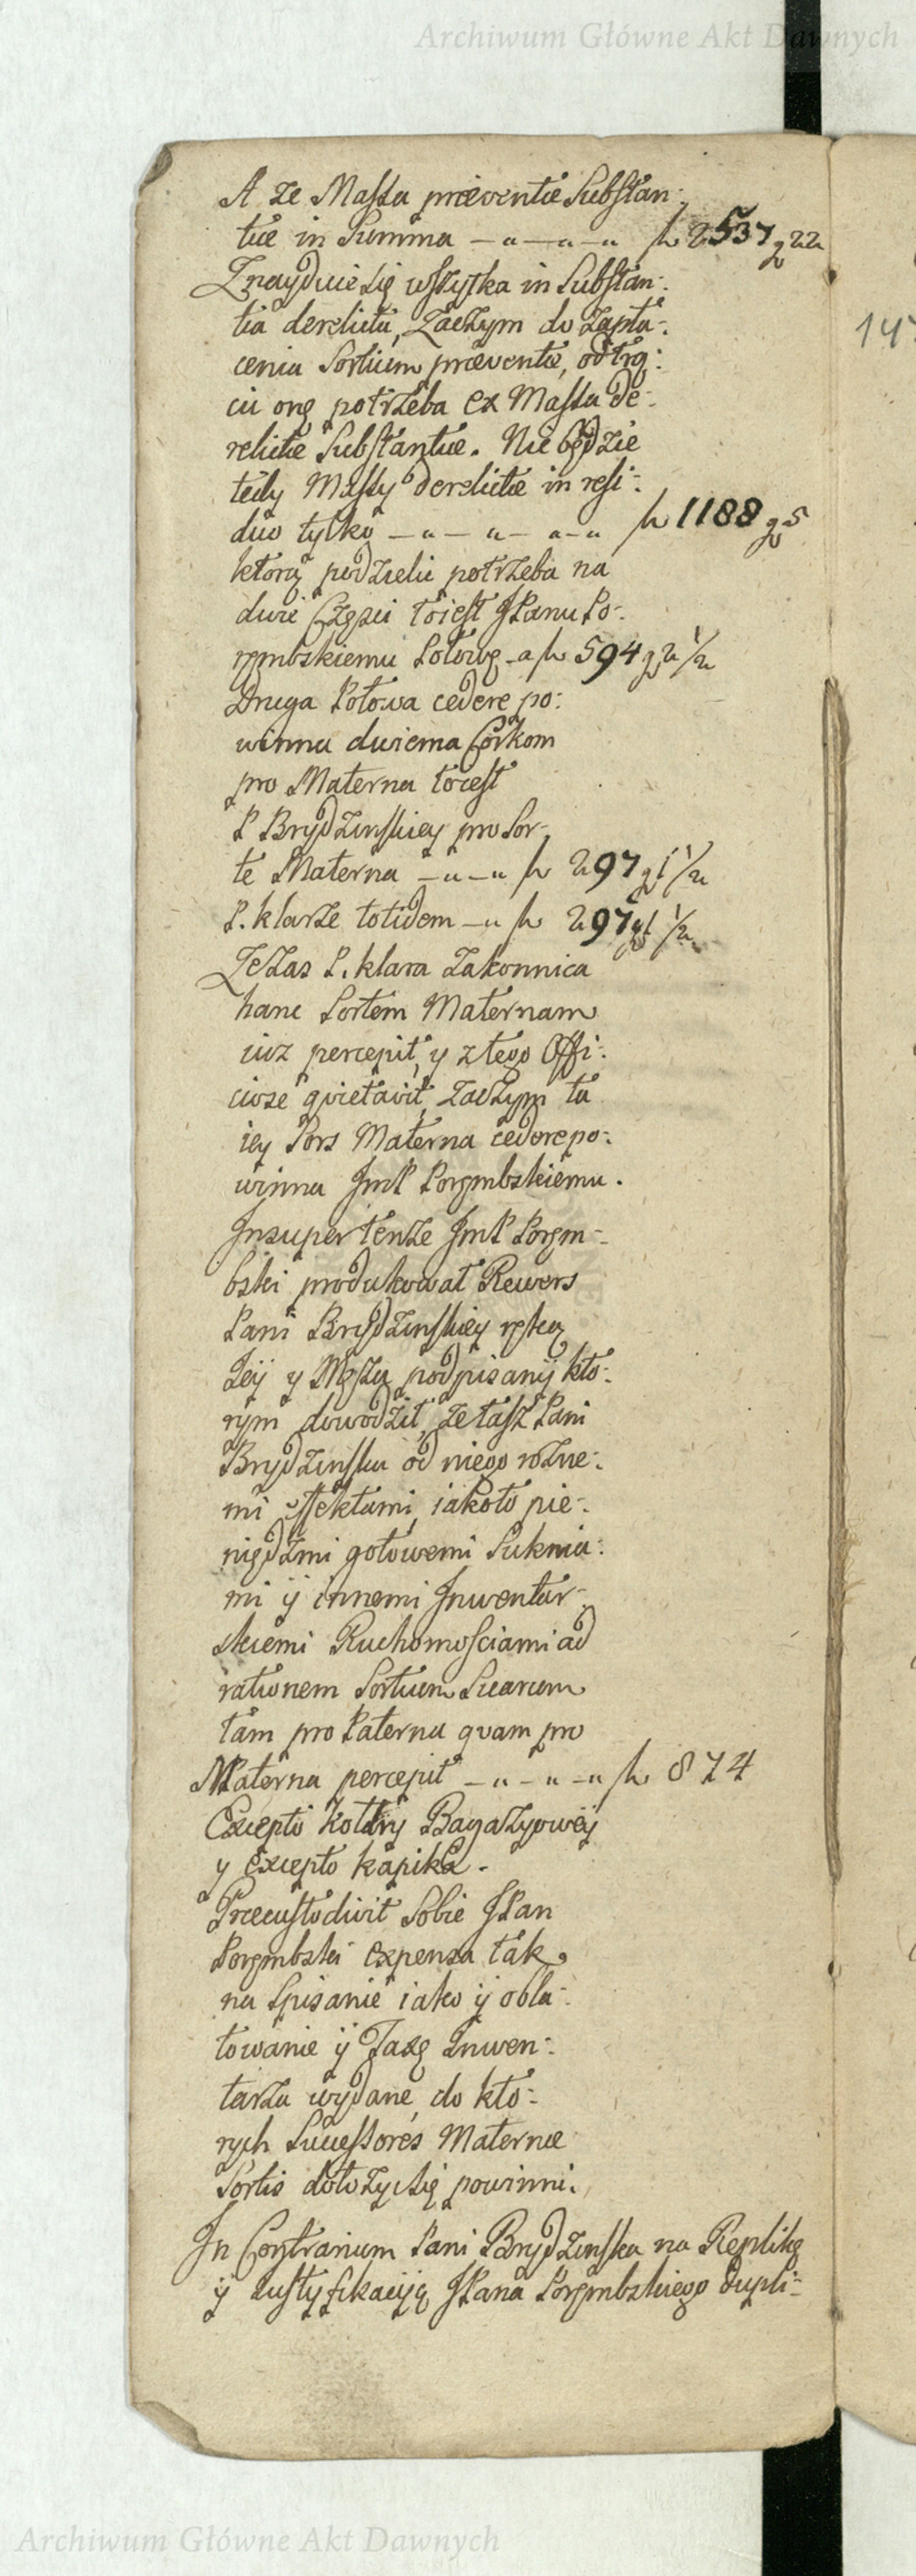 Archiwum Główne Akt Dawnych
A ze Massa præventæ Substan:
tiæ in Summa — " — " — " fl 2537 g 22
Znayduie się wszytka in Substan:
tia derelicta, Zaczym do Zapła:
cenia Sortium præventæ, odtrą:
cić onę potrzeba ex Massa de:
relictæ Substantiæ. Nie będzie
tedy Massy derelictæ in resi:
duo tylko — " — " — " — " fl 1188 g 5
ktorą podzielić potrzeba na
dwie Części toiest JPanu Po:
rembskiemu Połowę — a fl 594 g 2 1/2
Druga Połowa cedere po:
winna dwiema Corkom
pro Materna toiest
P Brydzinskiey pro Sor:
te Materna — " — " fl 297 g 1 1/2
P. klarze totidem — " fl 297 g 1 1/2
Ze Zas P. klara Zakonnica
hanc Sortem Maternam
iuz percepit, y z tego Offi:
ciose qvietavit, Zaczym ta
iey Sors Materna cedere po:
winna JmP Porembskiemu.
Insuper tenze JmP Porem:
bski produkował Rewers
Pani Brydzinskiey ręką
Jeij y Męża podpisanij kto:
rym dowodził, ze tasz Pani
Brydzinska od niego rożne:
mi Effektami, iakoto pie:
niędzmi gotowemi Suknia:
mi ij innemi Inwentar:
skiemi Ruchomosciami ad
rationem Sortium Suarum
tam pro Paterna qvam pro
Materna percepit — " — " — " fl 874
Excepto kołdry Bagażyowey
y Excepto kapika.
Præcustodivit Sobie JPan
Porembski expensa tak
na Spisanie iako ij obla:
towanie ij Taxę Inwen:
tarza wydane, do kto:
rych Successores Maternæ
Sortis dołozyc się powinni.
In Contrarium Pani Brydzinska na Replikę
ij Justyfikaciją JPana Porembskiego dupli:
147
Archiwum Główne Akt Dawnych